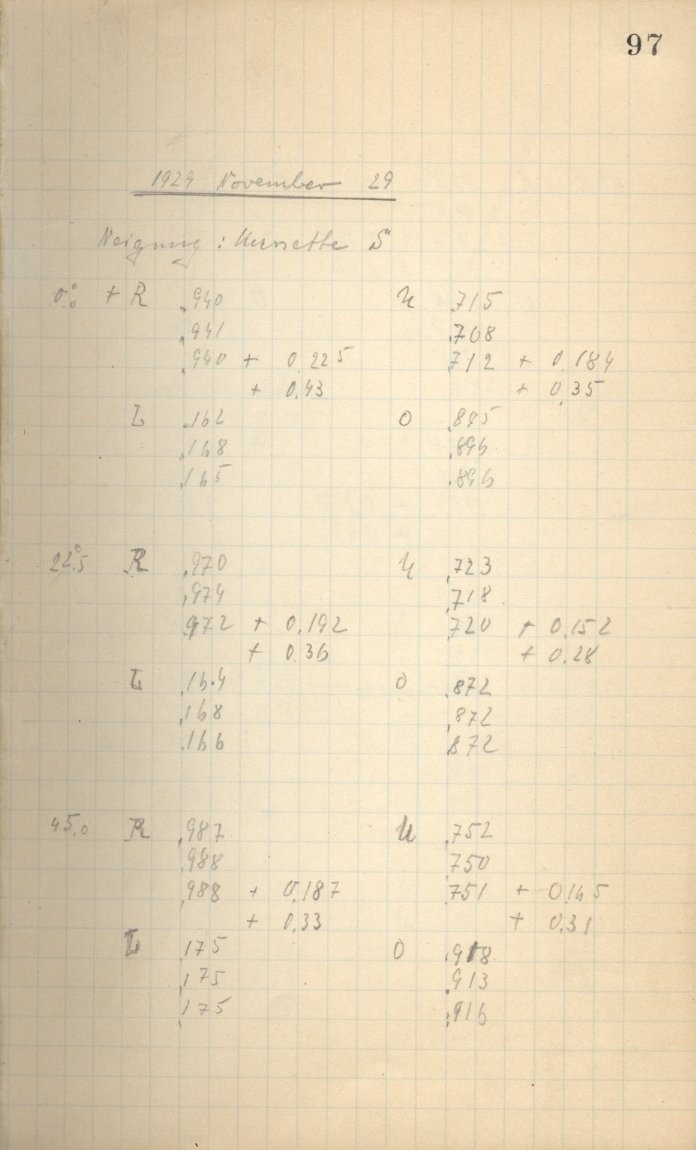 97
1929 November 29
Neigung : Kassette S"
0.°0 + R .940 U .715
.941 .708
.940 + 0.225 712 + 0.184
+ 0.43 + 0.35
L .162 O .895
.168 .896
.165 .896
22.°5 R .970 U .723
.974 .718
.972 + 0.192 720 + 0.152
+ 0.36 + 0.28
L .164 O .872
.168 .872
.166 872
45.0 R .987 U .752
.988 750
.988 + 0.187 751 + 0.165
+ 0.33 + 0.31
L 175 O .918
175 .913
175 .916